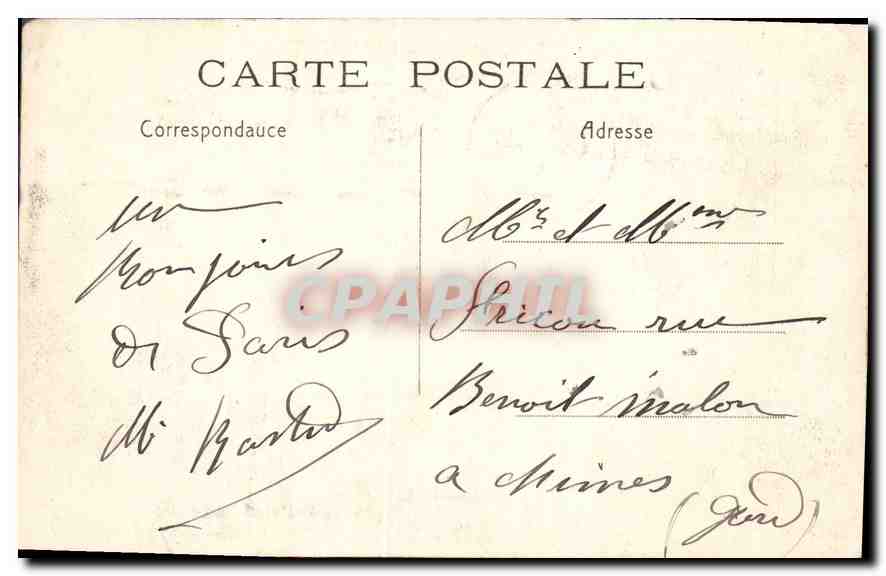 CARTE POSTALE
Correspondauce
Adresse
un
Bonjours
de Paris
M.
Mr et Mme
rue
Benoit malon
a Nimes
(Gard)
CPAPHIL